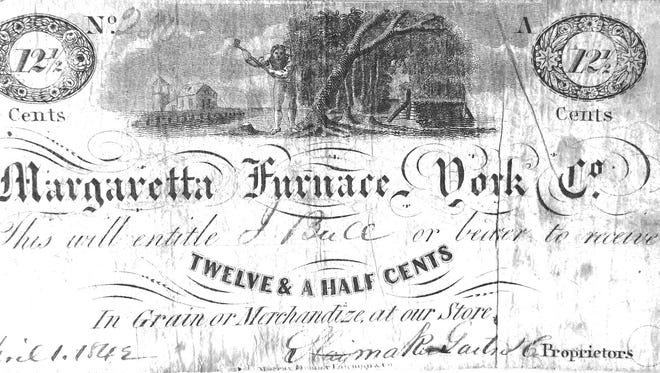 No. A
12½ 12½
Cents Cents
Margaretta Furnace, York Co.
This will entitle J Bull or bearer to receive
TWELVE & A HALF CENTS
In Grain or Merchandize, at our Store,
ril 1. 1842 Proprietors